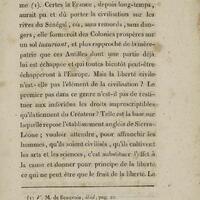 me (1). Certes la France, depuis long-temps,
aurait pu et dû porter la civilisation sur les
rives du Sénégal, où, sans remords, sans dan-
gers, elle formerait des Colonies prospères sur
un sol luxuriant, et plus rapproché de la mère-
patrie que ces Antilles dont une partie déjà
lui est échappée et qui toutes bientôt peut-être
échapperont à l'Europe. Mais la liberté civile
n'est-elle pas l'élément de la civilisation ? Le
premier pas dans ce genre n'est-il pas de resti-
tuer aux individus les droits imprescriptibles
qu'ils tiennent du Créateur? Telle est la base sur
laquelle repose l'établissement anglois de Sierra-
Léone ; vouloir attendre, pour affranchir les
hommes, qu'ils soient civilisés, qu'ils cultivent
les arts et les sciences, c'est substituer l'effet à
la cause et donner pour principe de la liberté
ce qui ne peut être que le fruit de la liberté. Le
(1) V. M. de Beauvois, ibid, pag.